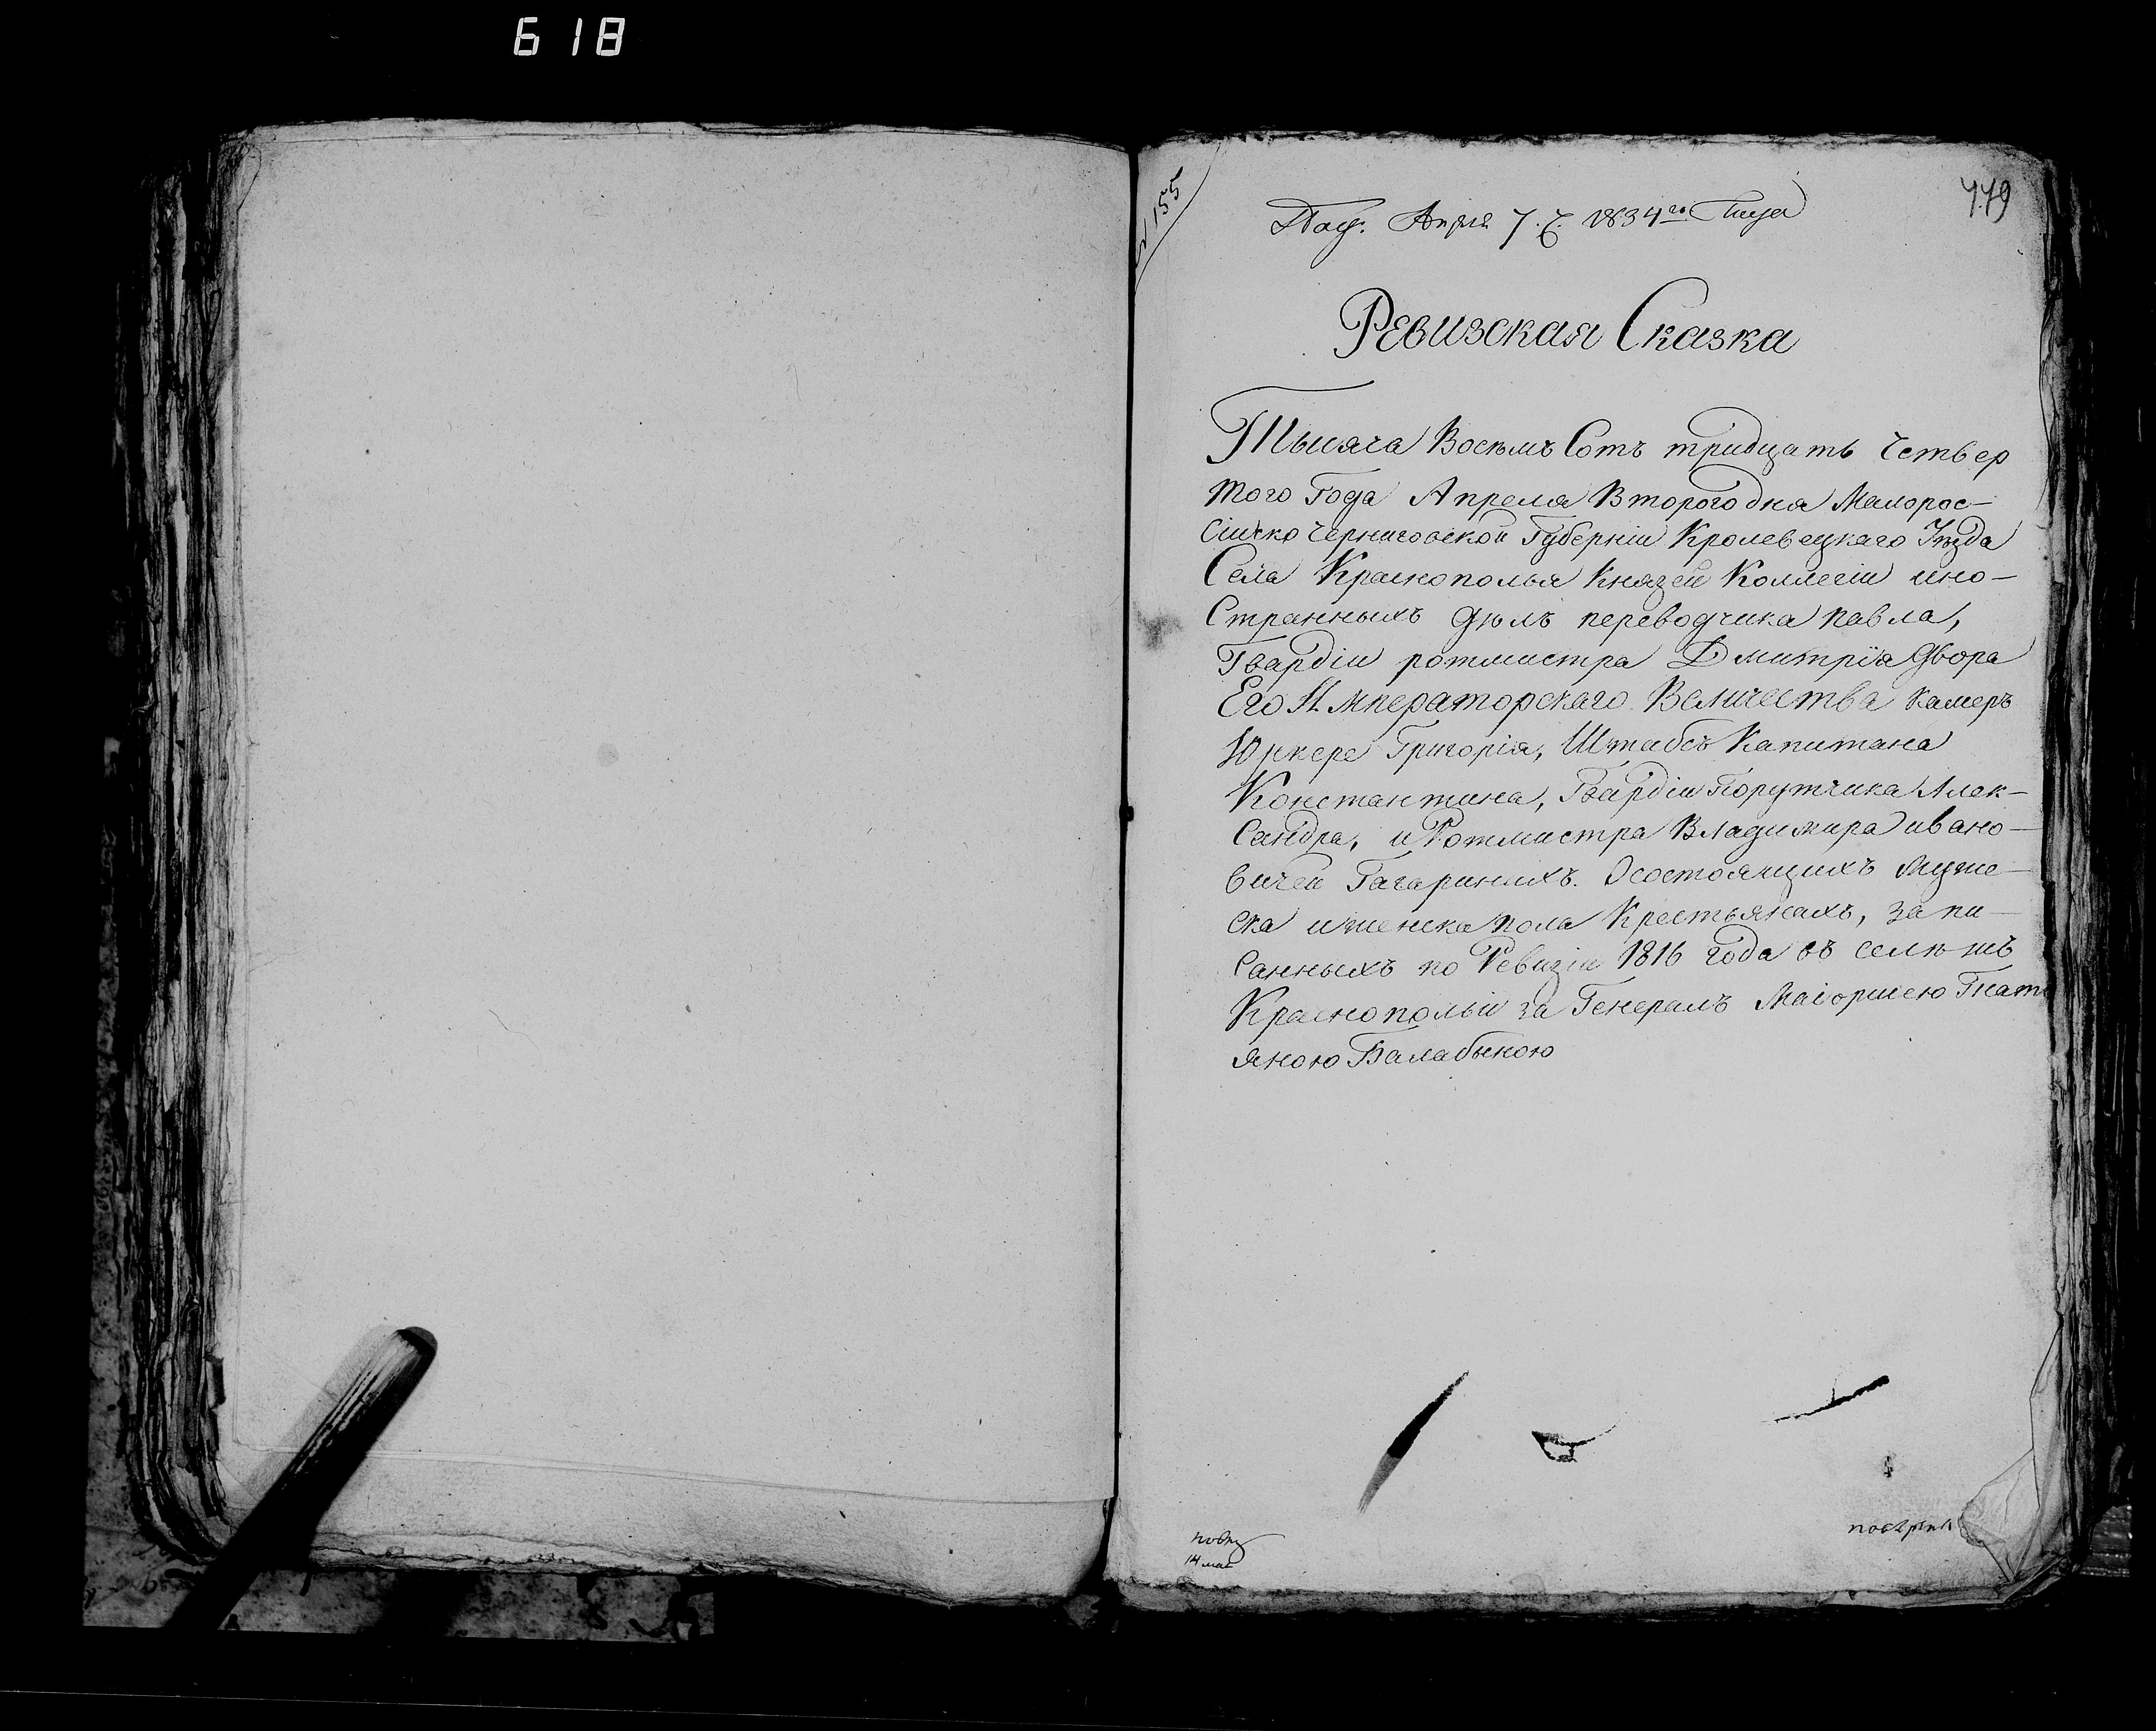 618
№ 155
779
Под. Апреля 7. д. 1834го Года
Ревизская Сказка
Тысяча Восемъ Сотъ тридцать четвер
того Года Апреля Второго дня Малорос-
сійско Черниговской Губерніи Кролевецкаго Уѣзда
Села Краснополья Князей Коллегіи ино-
Странныхъ дѣлъ переводчика павла,
Гвардіи ротмистра Дмитрія двора
Его Императорскаго Величества камеръ
Юркере Григорія, Штабсъ Капитана
Константина, Гвардіи Порутчика Алек-
Сандра, и Ротмистра Владимира ивано-
вичей Гагариныхъ. О состоящихъ Муже-
ска и женска пола Крестьянахъ, запи-
санныхъ по Ревизіи 1816 года въ селѣ тъ
Краснопольи за Генералъ Маіоршею Тнат
яною Балабиною
14 мая